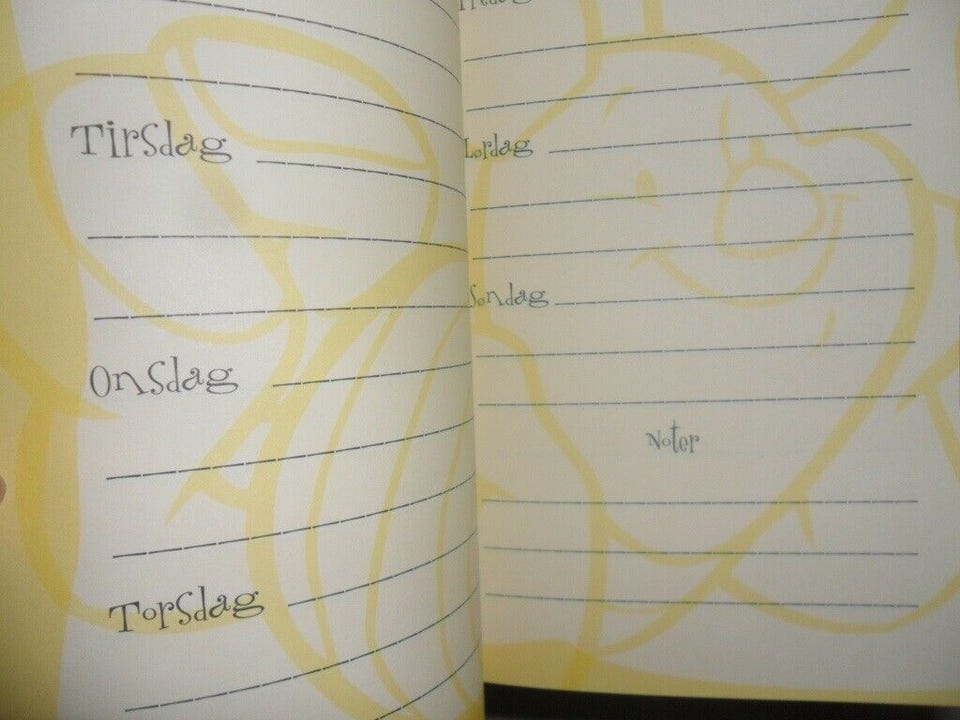 Tirsdag
Onsdag
Torsdag
Lørdag
Søndag
Noter